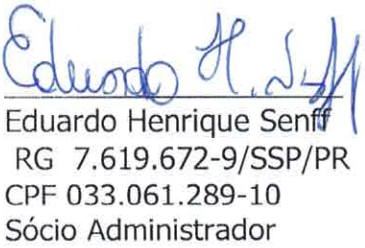 Eduardo H. Senff
Eduardo Henrique Senff
RG 7.619.672-9/SSP/PR
CPF 033.061.289-10
Sócio Administrador